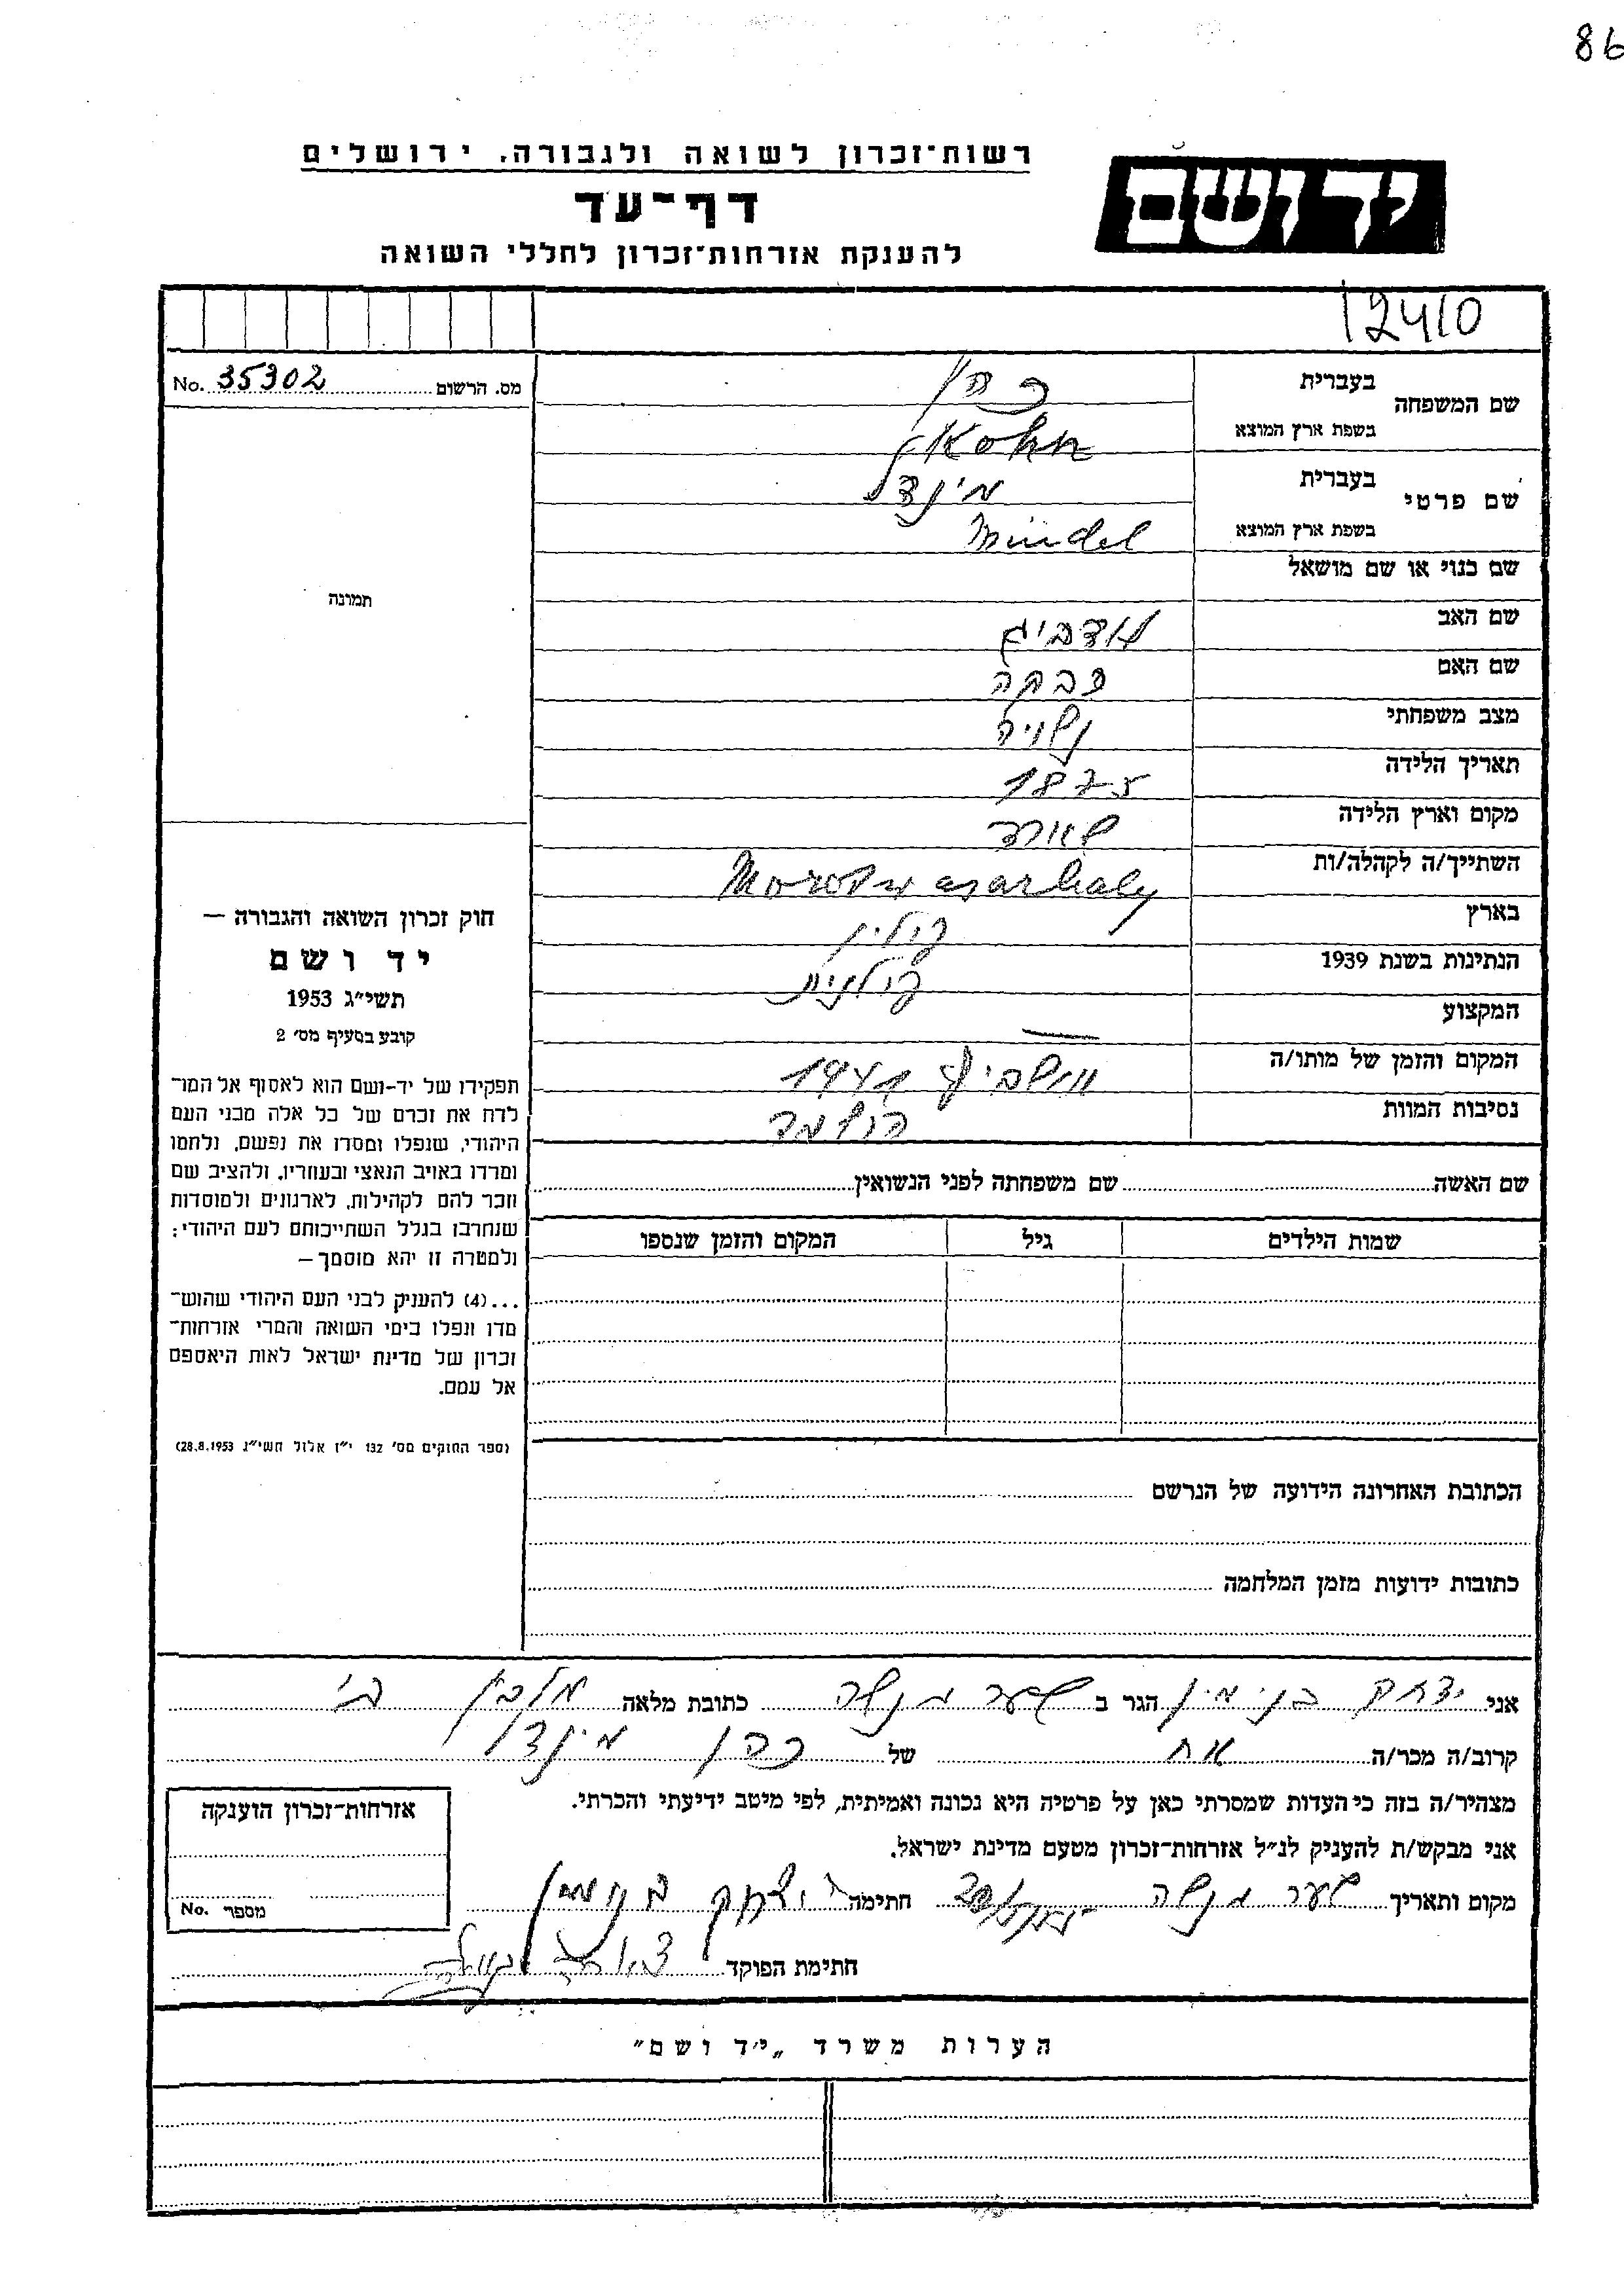 86
רשות־זכרון לשואה ולגבורה. ירושלים
יד ושם
דף־עד
להענקת אזרחות־זכרון לחללי השואה
12410
מס. הרשום No. 35302
שם המשפחה בעברית כהן
בשפת ארץ המוצא Kohn
שם פרטי בעברית מינדל
בשפת ארץ המוצא Mindel
שם כנוי או שם מושאל
שם האב
שם האם רבקה
מצב משפחתי נשויה
תאריך הלידה 1875
מקום וארץ הלידה
השתייך/ה לקהלה/ות
בארץ פולין
הנתינות בשנת 1939 פולנית
המקצוע —
המקום והזמן של מותו/ה אושביץ 1941
נסיבות המוות הושמד
תמונה
חוק זכרון השואה והגבורה —
יד ושם
תשי״ג 1953
קובע בסעיף מס׳ 2
תפקידו של יד-ושם הוא לאסוף אל המו־
לדת את זכרם של כל אלה מבני העם
היהודי, שנפלו ומסרו את נפשם, נלחמו
ומרדו באויב הנאצי ובעוזריו, ולהציב שם
וזכר להם לקהילות, לארגונים ולמוסדות
שנחרבו בגלל השתייכותם לעם היהודי;
ולמטרה זו יהא מוסמך—
...(4) להעניק לבני העם היהודי שהוש־
מדו ונפלו בימי השואה והמרי אזרחות־
זכרון של מדינת ישראל לאות היאספם
אל עמם.
(ספר החוקים מס׳ 132 י״ז אלול תשי״ג 28.8.1953)
שם האשה שם משפחתה לפני הנשואין
שמות הילדים גיל המקום והזמן שנספו
הכתובת האחרונה הידועה של הנרשם
כתובות ידועות מזמן המלחמה
אני יצחק בנימין הגר ב שער מנשה כתובת מלאה מלבן
קרוב/ה מכר/ה אח של כהן מינדל
מצהיר/ה בזה כי העדות שמסרתי כאן על פרטיה היא נכונה ואמיתית, לפי מיטב ידיעתי והכרתי.
אני מבקש/ת להעניק לנ״ל אזרחות־זכרון מטעם מדינת ישראל.
מקום ותאריך שער מנשה חתימה יצחק בנימין
חתימת הפוקד
אזרחות־זכרון הוענקה
מספר No.
הערות משרד „יד ושם״